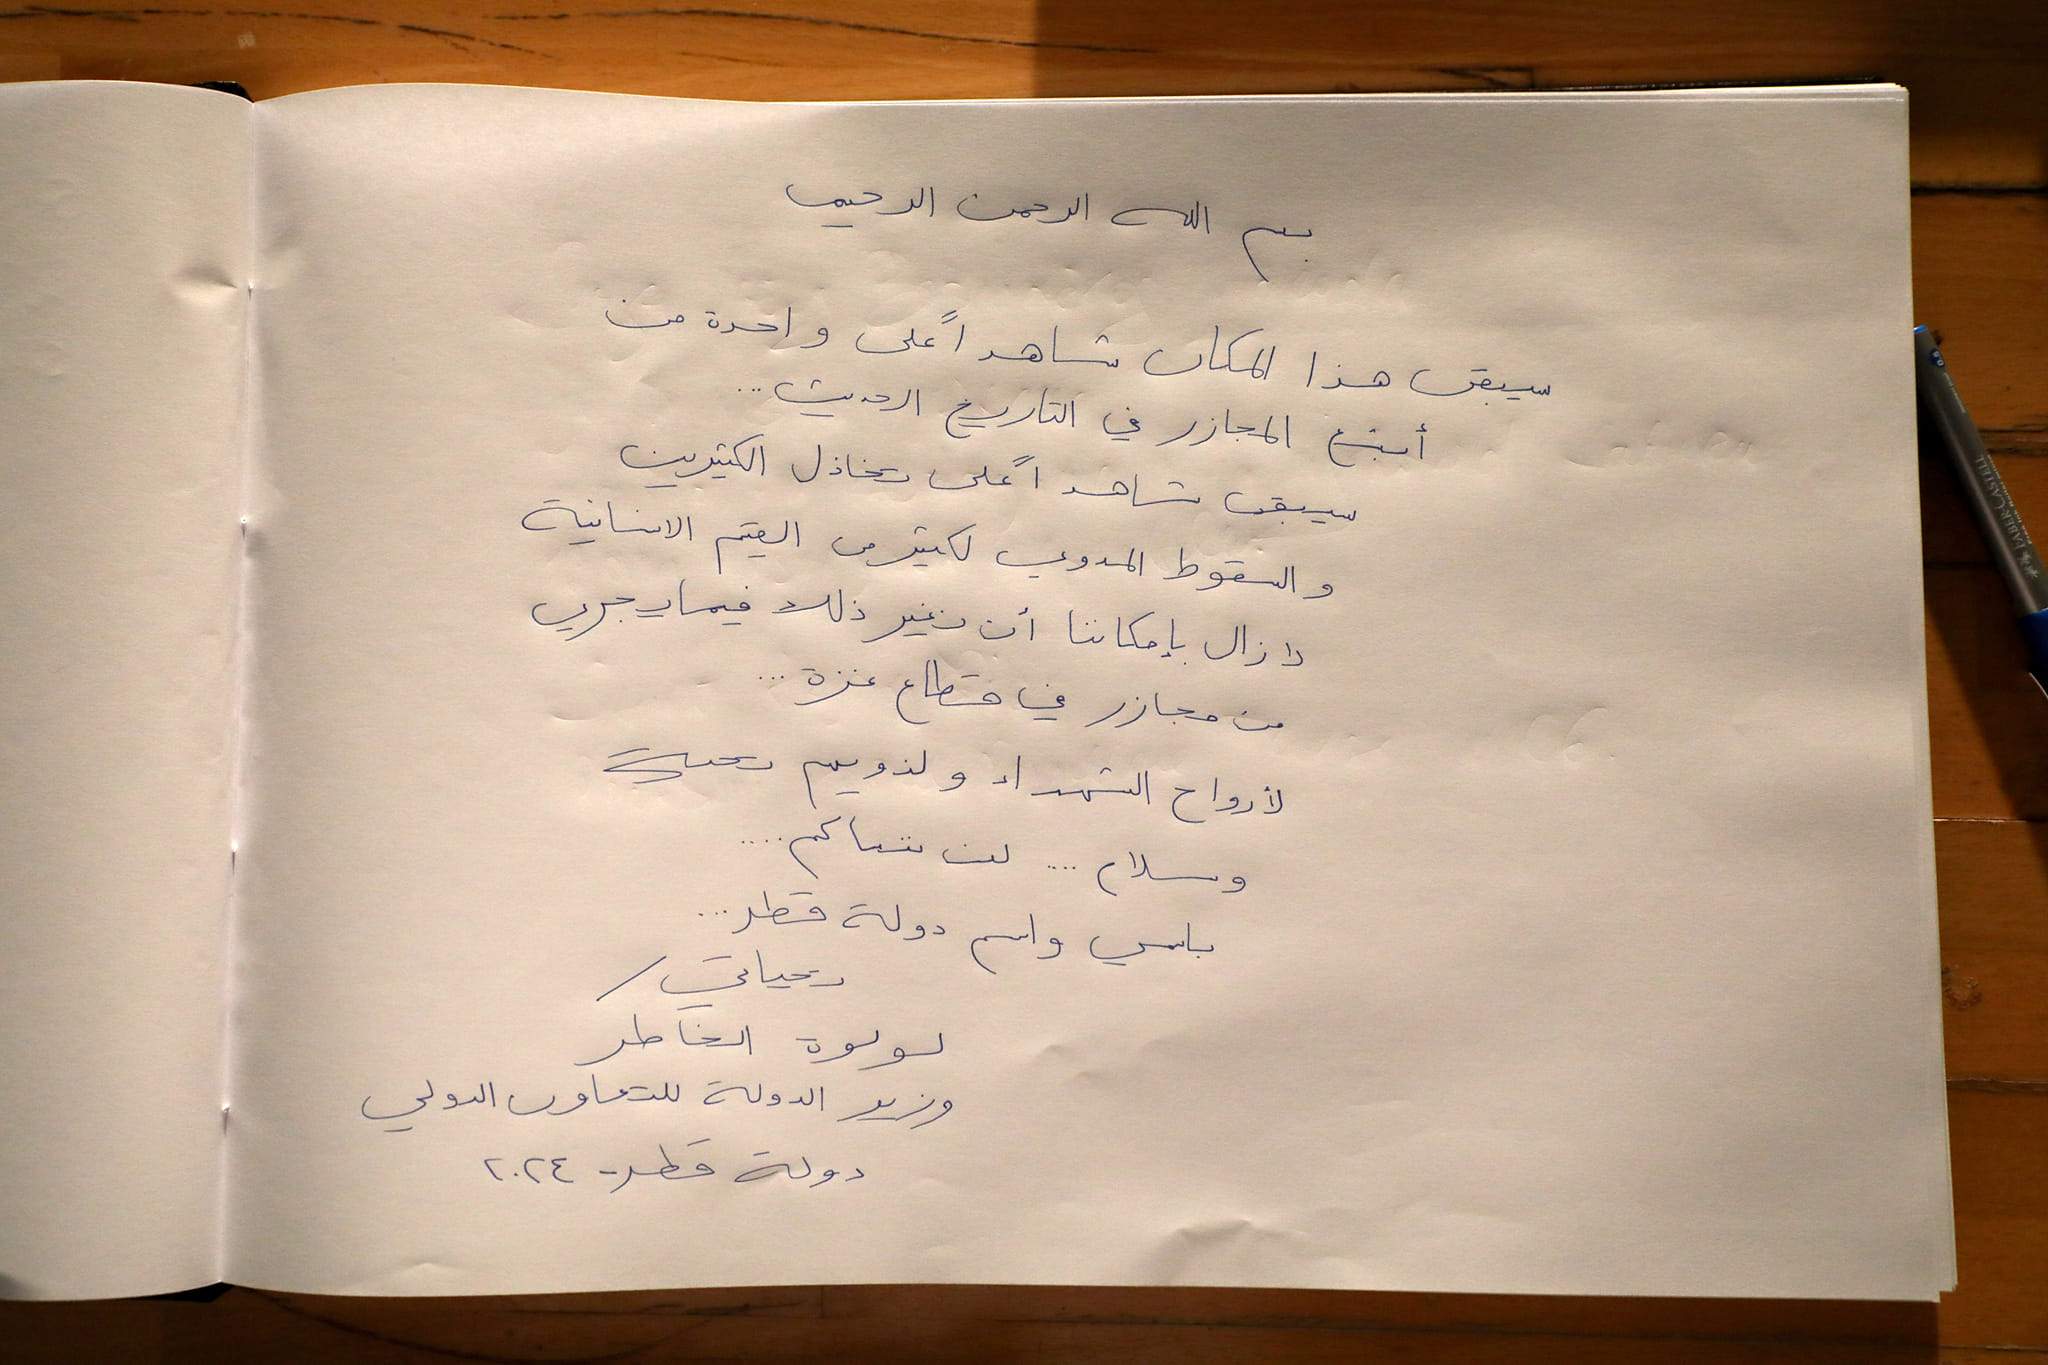 بسم الله الرحمن الرحيم
سيبقى هذا المكان شاهداً على واحدة من
أبشع المجازر في التاريخ الحديث...
سيبقى شاهداً على تخاذل الكثيرين
والسقوط المدوي لكثير من القيم الانسانية
لازال بإمكاننا أن نغير ذلك فيما يجري
من مجازر في قطاع غزة...
لأرواح الشهداء ولذويهم تحية
وسلام .... لن ننساكم ....
باسمي واسم دولة قطر...
تحياتي /
لولوة الخاطر
وزير الدولة للتعاون الدولي
دولة قطر- ٢٠٢٤
FABER-CASTELL